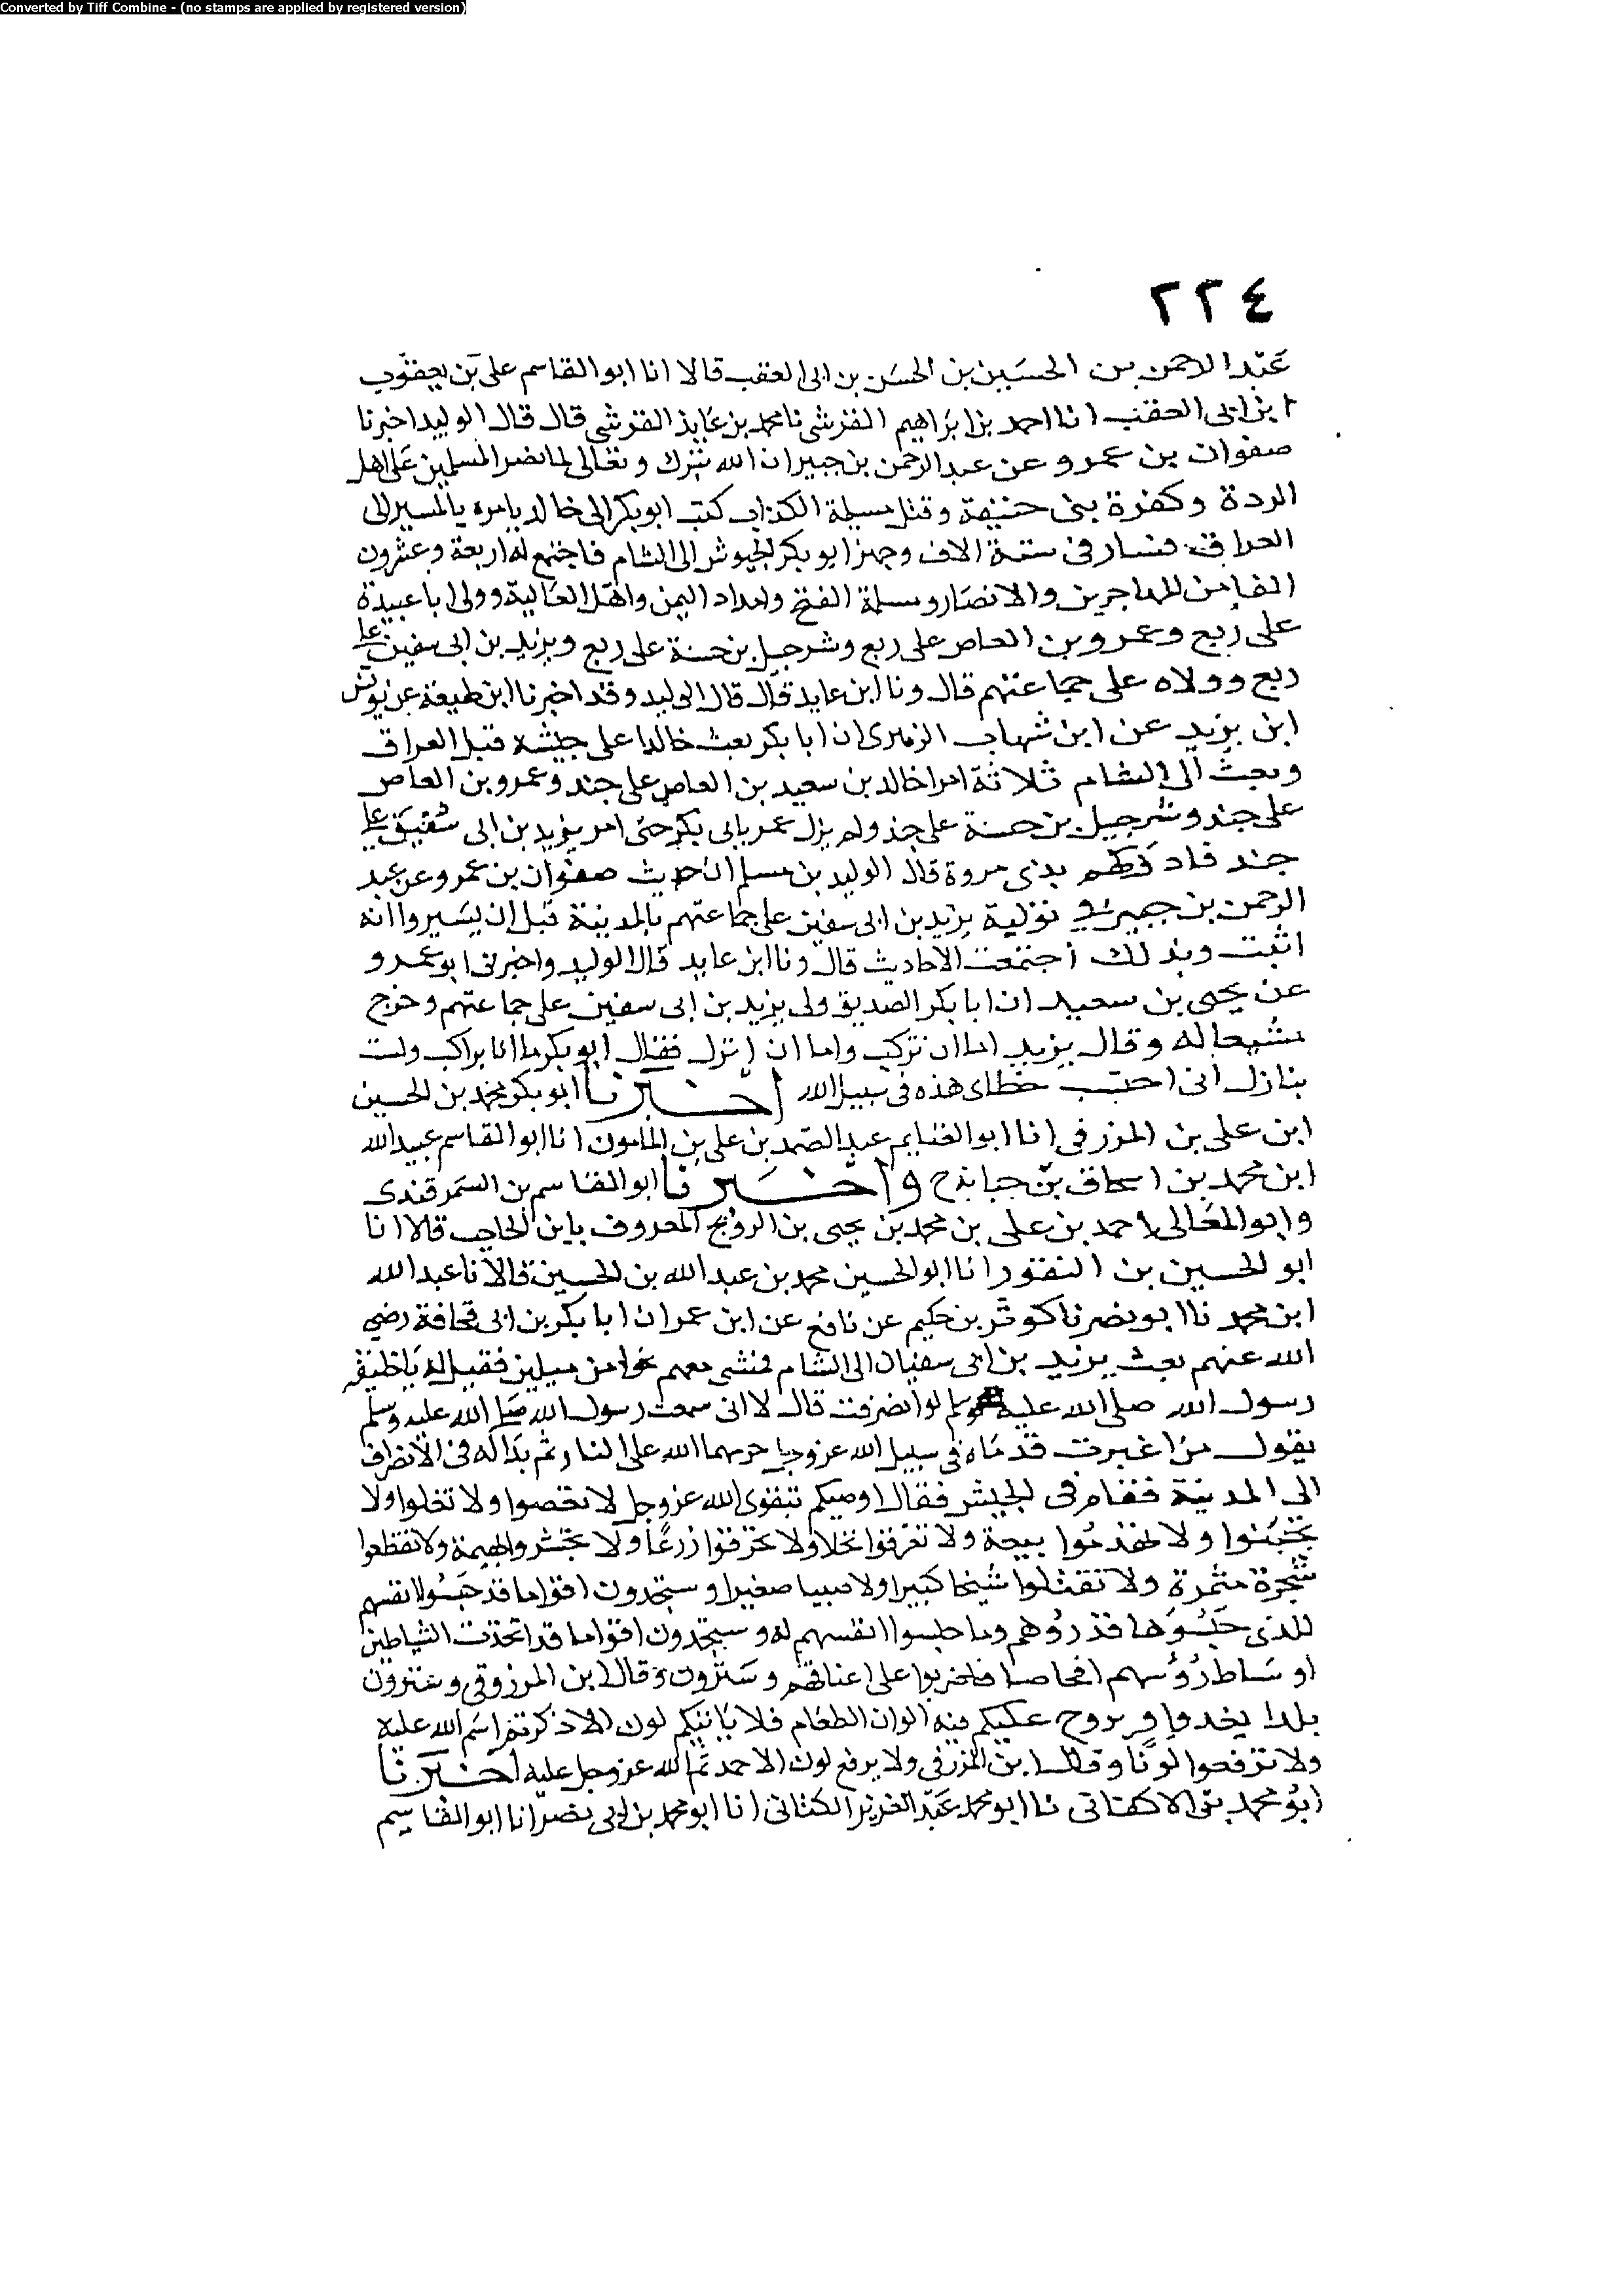 Converted by Tiff Combine - (no stamps are applied by registered version)
٢٢٤
عبد الرحمن بن الحسين بن الحسن بن ابى العقب قالا انا ابو القاسم على بن يعقوب
ابن ابى العقب انا احمد بن ابراهيم القرشى نا محمد بن عايذ القرشى قال قال الوليد اخبرنا
صفوان بن عمرو عن عبد الرحمن بن جبير ان الله تبرك وتعالى لما نصر المسلمين على اهل
الردة وكفرة بنى حنيفة وقتل مسيلمة الكذاب كتب ابو بكر الى خالد يامره يالمسير الى
العراق فسار فى ستة الاف وجهز ابو بكر الجيوش الى الشام فاجتمع له اربعة وعشرون
الفا من المهاجرين والانصار ومسلمة الفتح وامداد اليمن واهل العالية وولى ابا عبيدة
على ربع وعمرو بن العاص على ربع وشرحبيل بن حسنة على ربع ويزيد بن ابى سفين على
ربع وولاه على جماعتهم قال ونا ابن عايد قال قال الوليد وقد اخبرنا ابن لهيعة عن يونس
ابن يزيد عن ابن شهاب الزهرى ان ابا بكر بعث خالدا على جيشه قبل العراق
وبعث الى الشام ثلاثة امرا خالد بن سعيد بن العاص على جند وعمرو بن العاص
على جند وشرحبيل بن حسنة على جند ولم يزل عمر بابى بكر حتى امر يزيد بن ابى سفين على
جند فادركهم بذى مروة قال الوليد بن مسلم ان حديث صفوان بن عمرو عن عبد
الرحمن بن جبير فى تولية يزيد بن ابى سفين على جماعتهم بالمدينة قبل ان يسيروا انه
اثبت وبذلك اجتمعت الاحاديث قال ونا ابن عايد قال الوليد واخبرنى ابو عمرو
عن يحيى بن سعيد ان ابا بكر الصديق ولى يزيد بن ابى سفين على جماعتهم وخرج
مشيعا له وقال يزيد اما ان تركب واما ان انزل فقال ابو بكر ما انا براكب ولست
بنازل انى احتسب خطاى هذه فى سبيل الله اخبرنا ابو بكر محمد بن الحسين
ابن على بن المزرفى انا ابو الغنايم عبد الصمد بن على بن المامون انا ابو القاسم عبيد الله
ابن محمد بن اسحاق بن حبابة ح واخبرنا ابو القاسم بن السمرقندى
وابو المعالى احمد بن على بن محمد بن يحيى بن الروج المعروف باين الحاجب قالا انا
ابو الحسين بن النقور انا ابو الحسين محمد بن عبد الله بن الحسين قالا نا عبد الله
ابن محمد نا ابو نصر نا كوثر بن حكيم عن نافع عن ابن عمر ان ابا بكر بن ابى قحافة رضي
الله عنهم بعث يزيد بن ابى سفيان الى الشام فمشى معهم نحوا من ميلين فقيل له يا خليفة
رسول الله صلى الله عليه وسلم لو انصرفت قال لا انى سمعت رسول الله صلى الله عليه وسلم
يقول من اغبرت قدماه فى سبيل الله عز وجل حرمهما الله على النار ثم بدا له فى الانصراف
الى المدينة فقام فى الجيش فقال اوصيكم بتقوى الله عز وجل لا تعصوا ولا تغلوا ولا
تجبنوا ولا تهدموا بيعة ولا تغرقوا نخلا ولا تحرقوا زرعا ولا تجشروا بهيمة ولا تقطعوا
شجرة مثمرة ولا تقتلوا شيخا كبيرا ولا صبيا صغيرا وستجدون اقواما قد حبسوا انفسهم
للذى حبسوها فذروهم وما حبسوا انفسهم له وستجدون اقواما قد اتخذت الشياطين
اوساط رؤسهم افحاصا فاضربوا على اعناقهم وسترون وقال ابن المرزوقى وستردون
بلدا يغدوا ويروح عليكم فيه الوان الطعام فلا ياتينكم لون الا ذكرتم اسم الله عليه
ولا ترفعوا لونا وقال ابن المزرفى ولا يرفع لون الا حمدتم الله عز وجل عليه اخبرنا
ابو محمد بن الاكفانى نا ابو محمد عبد العزيز الكتانى انا ابو محمد بن ابى نصر انا ابو القاسم